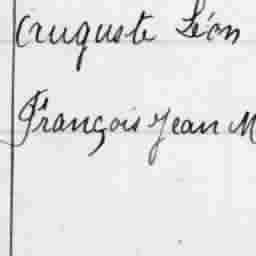 Auguste Léon
François Jean M